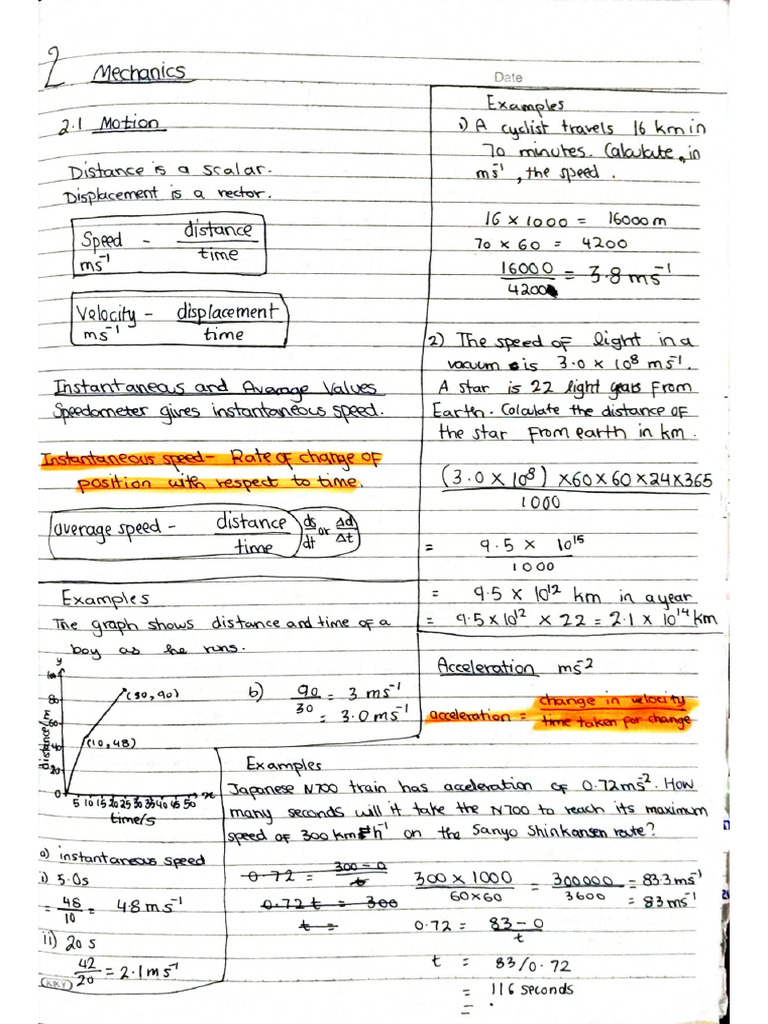 2 Mechanics
Date
2.1 Motion
Distance is a scalar.
Displacement is a vector.
Speed - distance/time
ms⁻¹
Velocity - displacement/time
ms⁻¹
Instantaneous and Average Values
Speedometer gives instantaneous speed.
Instantaneous speed - Rate of change of
position with respect to time.
average speed - distance/time ds/dt or Δd/Δt
Examples
The graph shows distance and time of a
boy as he runs.
y
80
60
40
20
0
distance/m
(30, 90)
(10, 48)
5 10 15 20 25 30 35 40 45 50 x
time/s
a) instantaneous speed
i) 5.0s
= 48/10 = 4.8 ms⁻¹
ii) 20 s
42/20 = 2.1 ms⁻¹
KKY
b) 90/30 = 3 ms⁻¹
= 3.0 ms⁻¹
Examples
1) A cyclist travels 16 km in
70 minutes. Calculate, in
ms⁻¹, the speed.
16 x 1000 = 16000 m
70 x 60 = 4200
16000/4200 = 3.8 ms⁻¹
2) The speed of light in a
vacuum is 3.0 x 10⁸ ms⁻¹.
A star is 22 light years from
Earth. Calculate the distance of
the star from earth in km.
(3.0 x 10⁸) x 60 x 60 x 24 x 365 / 1000
= 9.5 x 10¹⁵ / 1000
= 9.5 x 10¹² km in a year
= 9.5 x 10¹² x 22 = 2.1 x 10¹⁴ km
Acceleration ms⁻²
acceleration = change in velocity / time taken for change
Examples
Japanese N700 train has acceleration of 0.72 ms⁻². How
many seconds will it take the N700 to reach its maximum
speed of 300 km h⁻¹ on the Sanyo Shinkansen route?
0.72 = 300 - 0 / t
0.72 t = 300
t =
300 x 1000 / 60 x 60 = 300000 / 3600 = 83.3 ms⁻¹
= 83 ms⁻¹
0.72 = 83 - 0 / t
t = 83/0.72
= 116 seconds
=